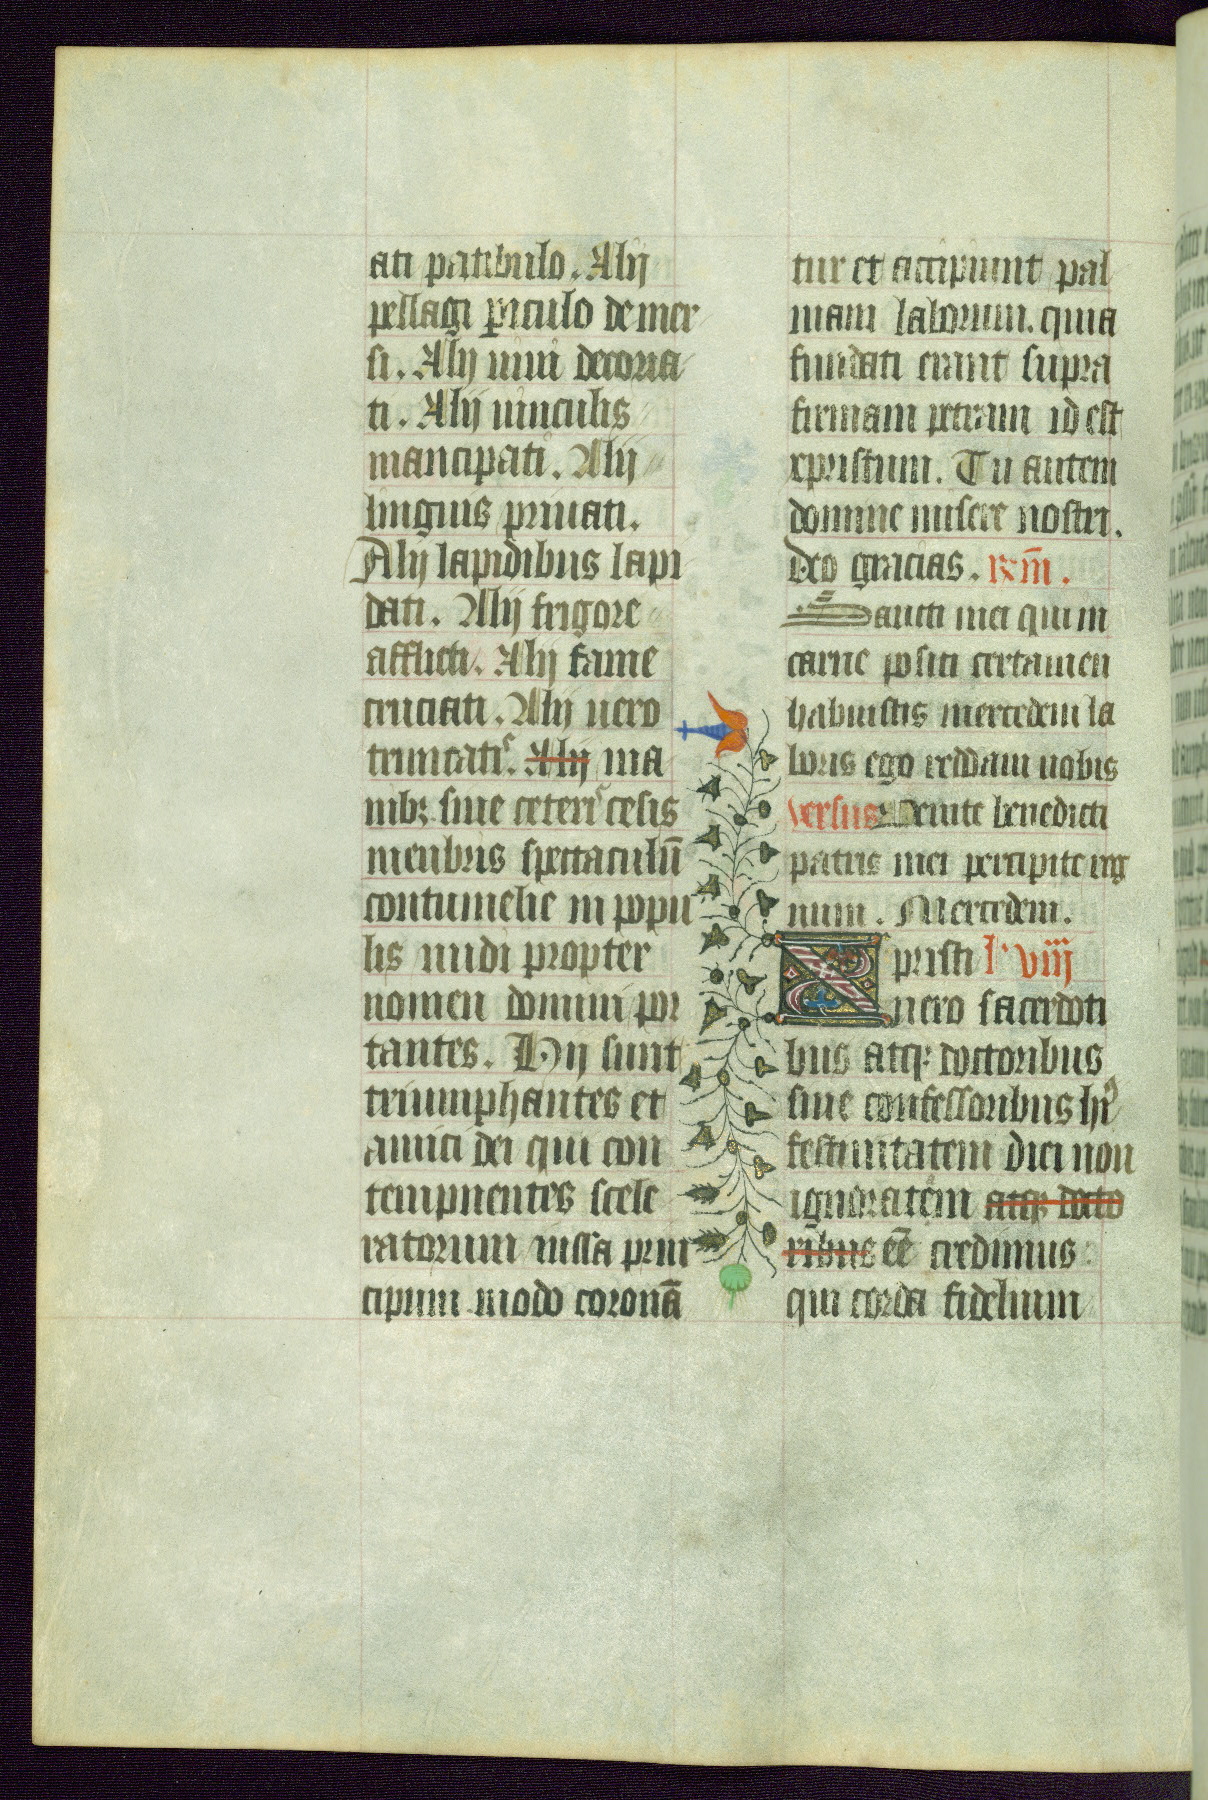 ati patibulo. Alij
pellagi piculo demer
si. Alij uiui decoria
ti. Alij uinculis
mancipati. Alij
linguis priuati.
Alij lapidibus lapi
dati. Alij frigore
afflicti. Alij fame
cruciati. Alij uero
truncatis. Alij ma
nibz siue ceteris cesis
menbris spectaculū
contumelie in popu
lis nudi propter
nomen domini por
tantes. Hij sunt
triumphantes et
amici dei qui con
tempnentes scele
ratorum iussa prin
cipum modo coronā
tur et accipiunt pal
mam laborum. quia
fundati erant supra
firmam petram id est
xpristum. Tu autem
domine miserere nostri.
Deo gracias. Rm̄.
Sancti mei qui in
carne positi certamen
habuistis mercedem la
boris ego reddam uobis
versus Uenite benedicti
patris mei percipite reg
num. Mercedem.
Xpristi l' viij
uero sacerdoti
bus atqz doctoribus
siue confessoribus hr̄
festiuitatem diei non
ignoratem atqz docto
ribus eē credimus
qui corda fidelium